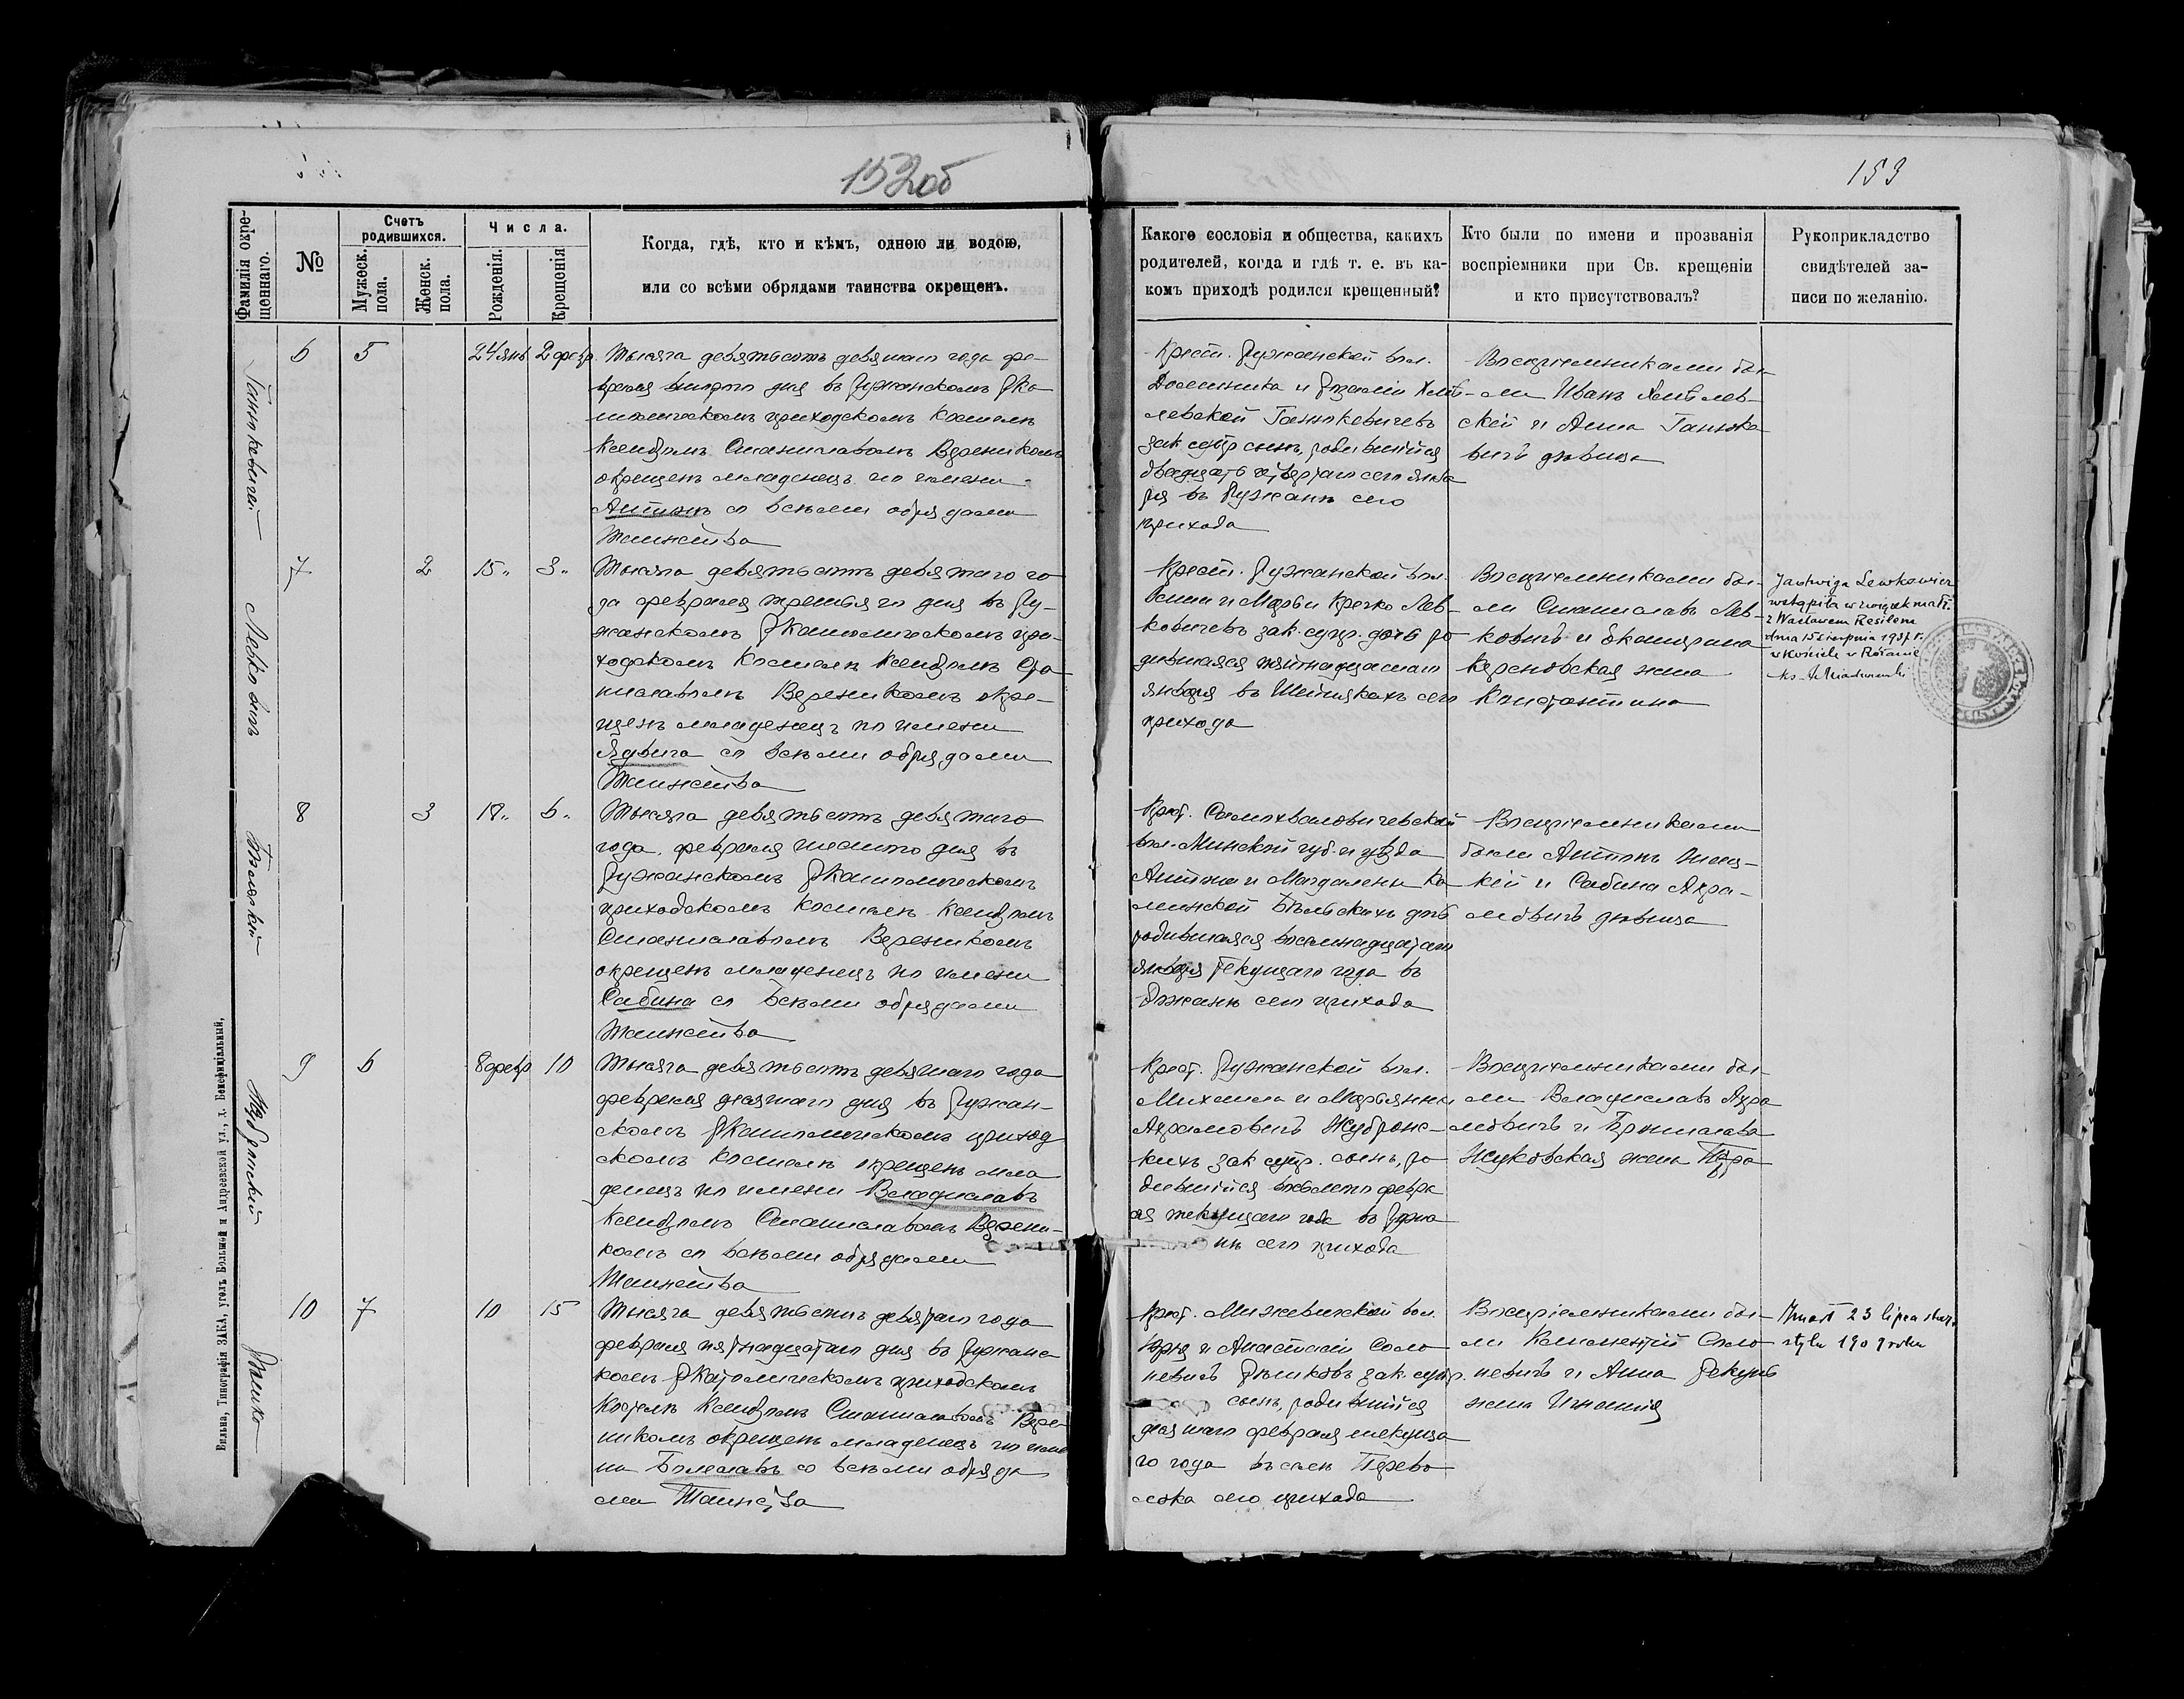 152об
153
Фамилія окре-
щеннаго.
№
Счетъ
родившихся.
Мужеск.
пола.
Женск.
пола.
Числа.
Рожденія.
Крещенія
Когда, гдѣ, кто и кѣмъ, одною ли водою,
или со всѣми обрядами таинства окрещенъ.
Какого сословія и общества, какихъ
родителей, когда и гдѣ т. е. въ ка-
комъ приходѣ родился крещенный?
Кто были по имени и прозванія
воспріемники при Св. крещеніи
и кто присутствовалъ?
Рукоприкладство
свидѣтелей за-
писи по желанію.
6 5 24 янв 2 февр.
Тысяча девятьсотъ девятаго года фе-
враля втораго дня въ Ружанскомъ Рка-
толическомъ приходскомъ костелѣ
Ксендзомъ Станиславомъ Верникомъ
окрещенъ младенецъ по имени
Антонъ со всѣми обрядами
Таинства
Крест. Ружанской вол.
Доминика и Розаліи Хмѣ-
левской Ганькевичей
зак супр сынъ, родившійся
двадцать четвертаго сего янва
ря въ Ружанѣ сего
прихода
Воспріемниками бы-
ли Иванъ Хмѣлев-
скій и Анна Ганько
вичъ дѣвица
Левковичъ
7 2 15„ 3„
Тысяча девятьсотъ девятаго го
да февраля третьяго дня въ Ру-
жанскомъ Ркатолическомъ при-
ходскомъ костелѣ Ксендзомъ Ста
ниславомъ Верникомъ окре-
щенъ младенецъ по имени
Ядвига со всѣми обрядами
Таинства
Крест. Ружанской вол.
и Марьи Кречко Лев-
ковичевъ зак. супр. дочь ро
дившаяся пятнадцатаго
января въ сего
прихода
Воспріемниками бы-
ли Станиславъ Лев-
ковичъ и Екатерина
жена
Константина
Jadwiga Lewkowicz
wstąpiła w związek małż.
z Wacławem
dnia 15 sierpnia 1937 r.
w kościele w Różanie
ks.
8 3 18„ 6„
Тысяча девятьсотъ девятаго
года февраля шестого дня въ
Ружанскомъ Ркатолическомъ
приходскомъ костелѣ Ксендзомъ
Станиславомъ Верникомъ
окрещенъ младенецъ по имени
Сабина со всѣми обрядами
Таинства
Крест. Самохваловичевской
вол. Минской губ. и уѣзда
Антона и Магдалены Ка
минской Бѣльскихъ дочь
родившаяся восемнадцатаго
января текущаго года въ
Ружанѣ сего прихода
Воспріемниками
были Антонъ
кій и Сабина Абра-
мовичъ дѣвица
9 6 8 февр 10
Тысяча девятьсотъ девятаго года
февраля десятаго дня въ Ружан-
скомъ Ркатолическомъ приход
скомъ костелѣ окрещенъ мла
денецъ по имени Владиславъ
Ксендзомъ Станиславомъ Верни-
комъ со всѣми обрядами
Таинства
Крест. Ружанской вол.
Михаила и Марьянны
Абрамовичъ Жубронс-
кихъ зак супр. сынъ, ро
дившійся восьмого февра
ля текущаго года въ Ружа
нѣ сего прихода
Воспріемниками бы-
ли Владиславъ Абра
мовичъ и Бронислава
Жуковская жена
10 7 10 15
Тысяча девятьсотъ девятаго года
февраля пятнадцатаго дня въ Ружанс
комъ Ркатолическомъ приходскомъ
костелѣ Ксендзомъ Станиславомъ Вер-
никомъ окрещенъ младенецъ по име
ни Болеславъ со всѣми обряда
ми Таинства
Крест. Мижевичской вол.
Юрія и Анастасіи Соло
невичъ зак. супр.
сынъ, родившійся
десятаго февраля текуща
го года въ
сего прихода
Воспріемниками бы-
ли Климентій Соло
невичъ и Анна
жена Игнатія
Zmarł 23 lipca star.
stylu 1909 roku
Вильна, Типографія ЗАКА, уголъ Большой и Андреевской ул., д. Бенефиціальный.